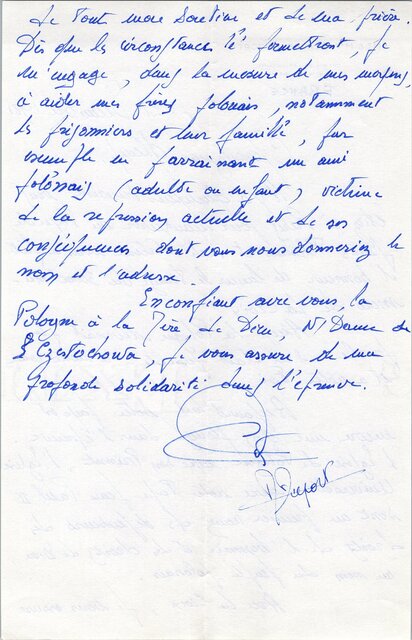 de tout mon soutien et de ma prière.
Dès que les circonstances le permettront, je
m'engage, dans la mesure de mes moyens,
à aider mes frères polonais, notamment
les prisonniers et leur famille, par
exemple en parrainant un ami
polonais (adulte ou enfant) victime
de la répression actuelle et de ses
conséquences dont vous nous donneriez le
nom et l'adresse.
En confiant avec vous, la
Pologne à la Mère de Dieu, N Dame de
Czestochowa, je vous assure de ma
profonde solidarité dans l'épreuve.